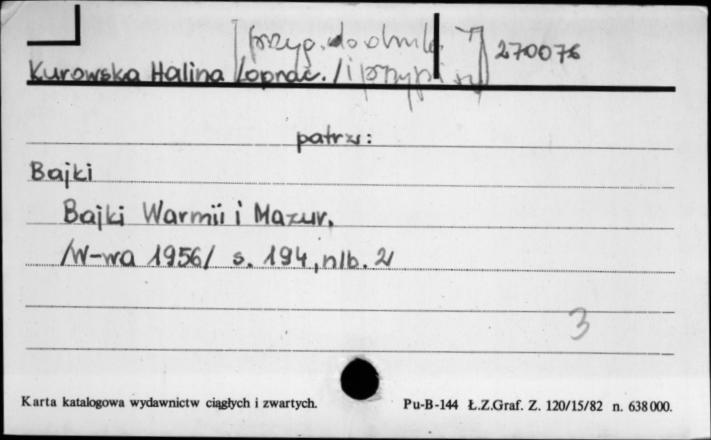 270076
Kurowska Halina /oprac./ i przyp.
patrz:
Bajki
Bajki Warmii i Mazur.
/W-wa 1956/ s. 194, nlb. 2
3
Karta katalogowa wydawnictw ciągłych i zwartych. Pu-B-144 Ł.Z.Graf. Z. 120/15/82 n. 638000.